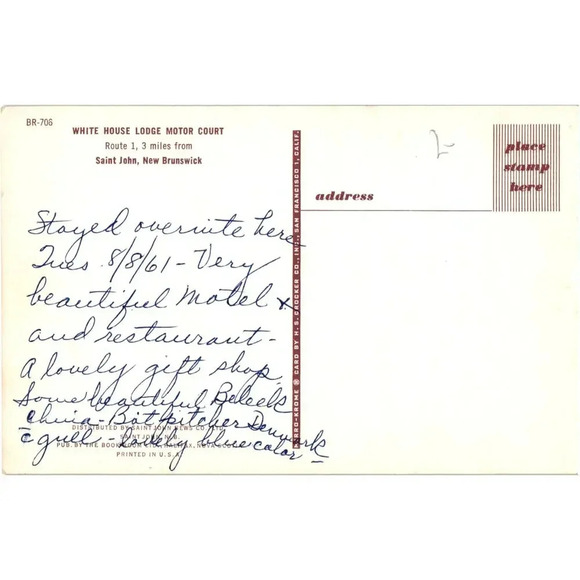 BR-706
WHITE HOUSE LODGE MOTOR COURT
Route 1, 3 miles from
Saint John, New Brunswick
place
stamp
here
address
Stayed overnite here
Tues 8/8/61 - Very
beautiful Motel &
and restaurant -
A lovely gift shop.
Some beautiful Beleek
china - Bot pitcher Denmark
c̄ gull - lovely blue color
DISTRIBUTED BY SAINT JOHN NEWS CO. LTD.
SAINT JOHN, N.B.
PUB. BY THE BOOK ROOM LTD., HALIFAX, NOVA SCOTIA
PRINTED IN U.S.A.
MIRRO-KROME ® CARD BY H. S. CROCKER CO., INC., SAN FRANCISCO 1, CALIF.